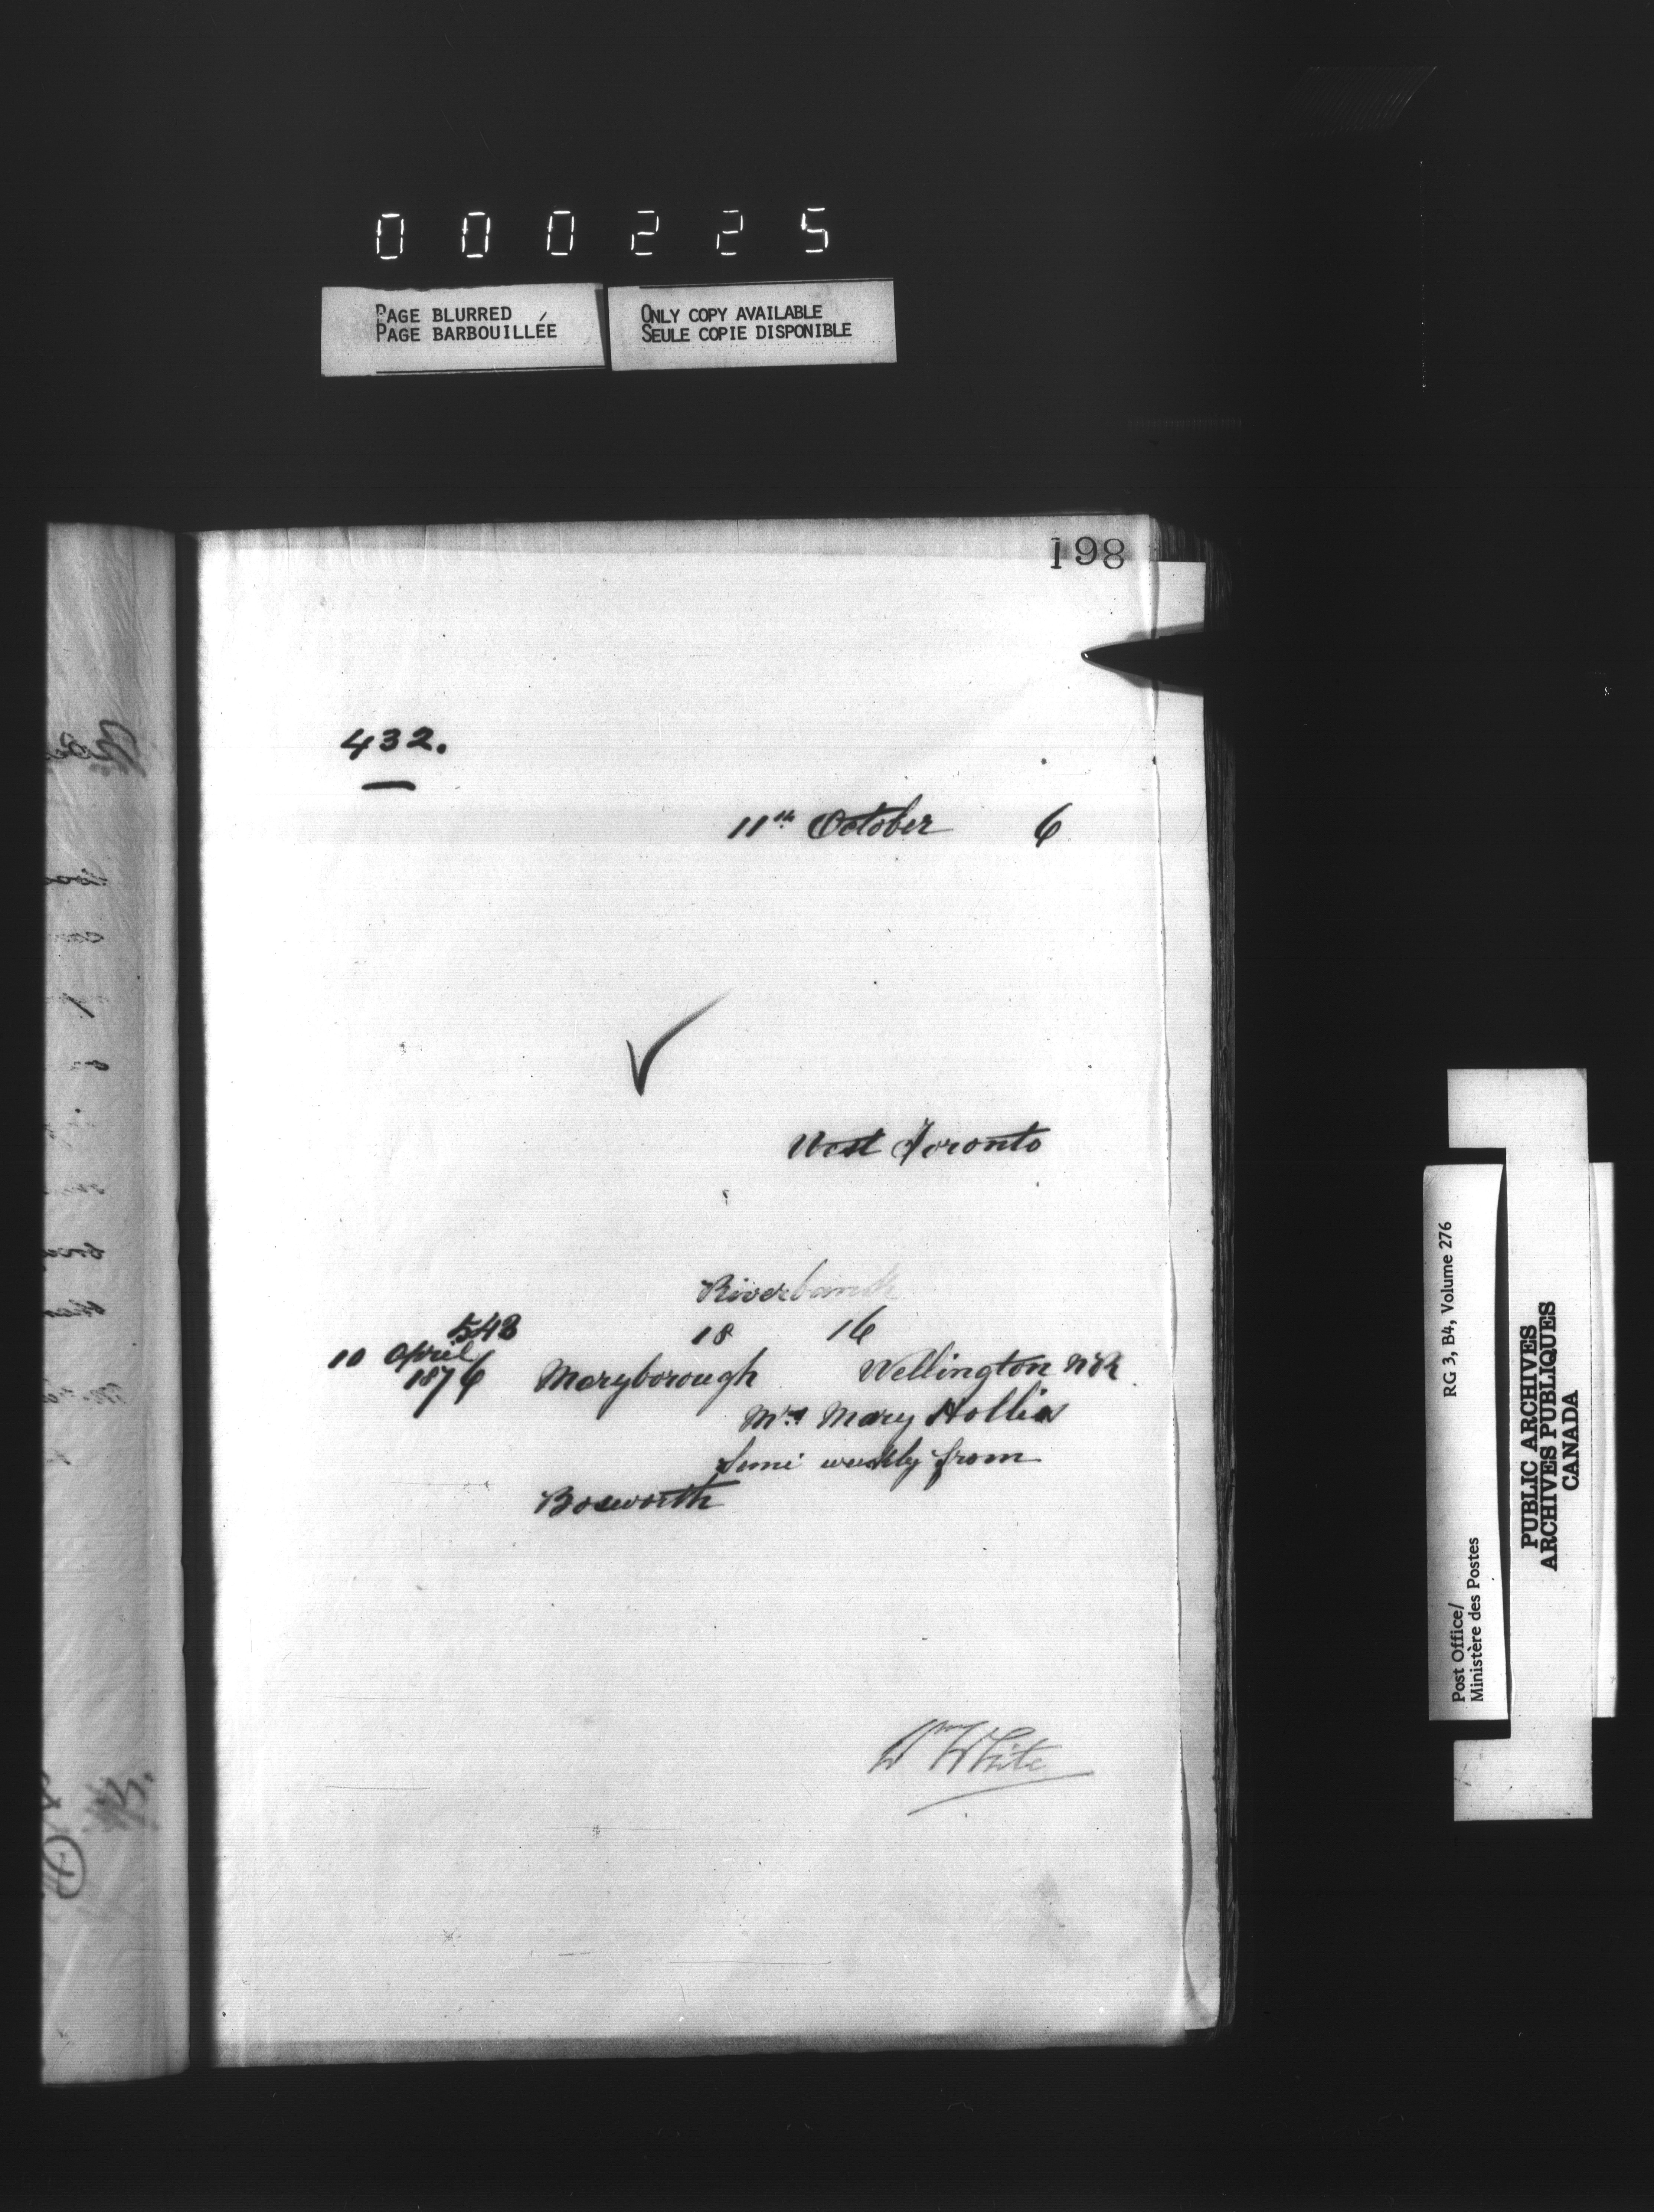 000225
PAGE BLURRED
PAGE BARBOUILLÉE
ONLY COPY AVAILABLE
SEULE COPIE DISPONIBLE
198
432.
11th October 6
West Toronto
Riverbank
548
18 16
10 April
1876 Maryborough Wellington N R
Mrs Mary Hollis
Semi weekly from
Bosworth
Wm White
RG 3, B4, Volume 276
Post Office/
Ministère des Postes
PUBLIC ARCHIVES
ARCHIVES PUBLIQUES
CANADA